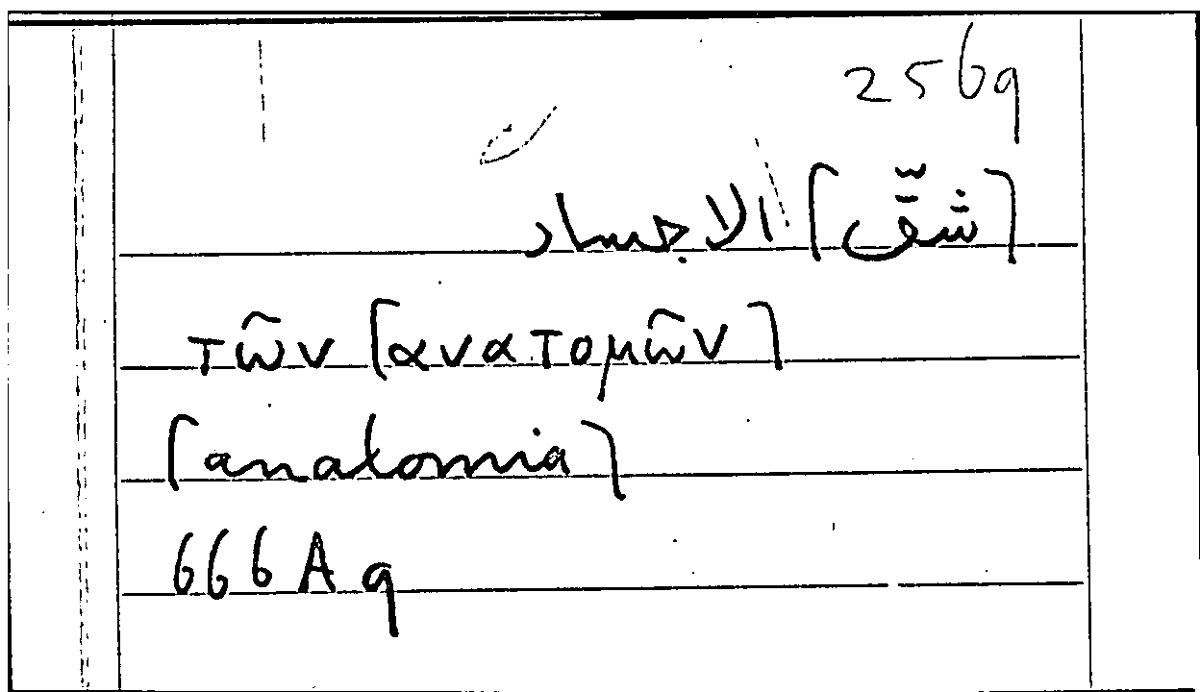 2569
[شقّ] الاجساد
τῶν [ανατομῶν]
[anatomia]
666 A 9